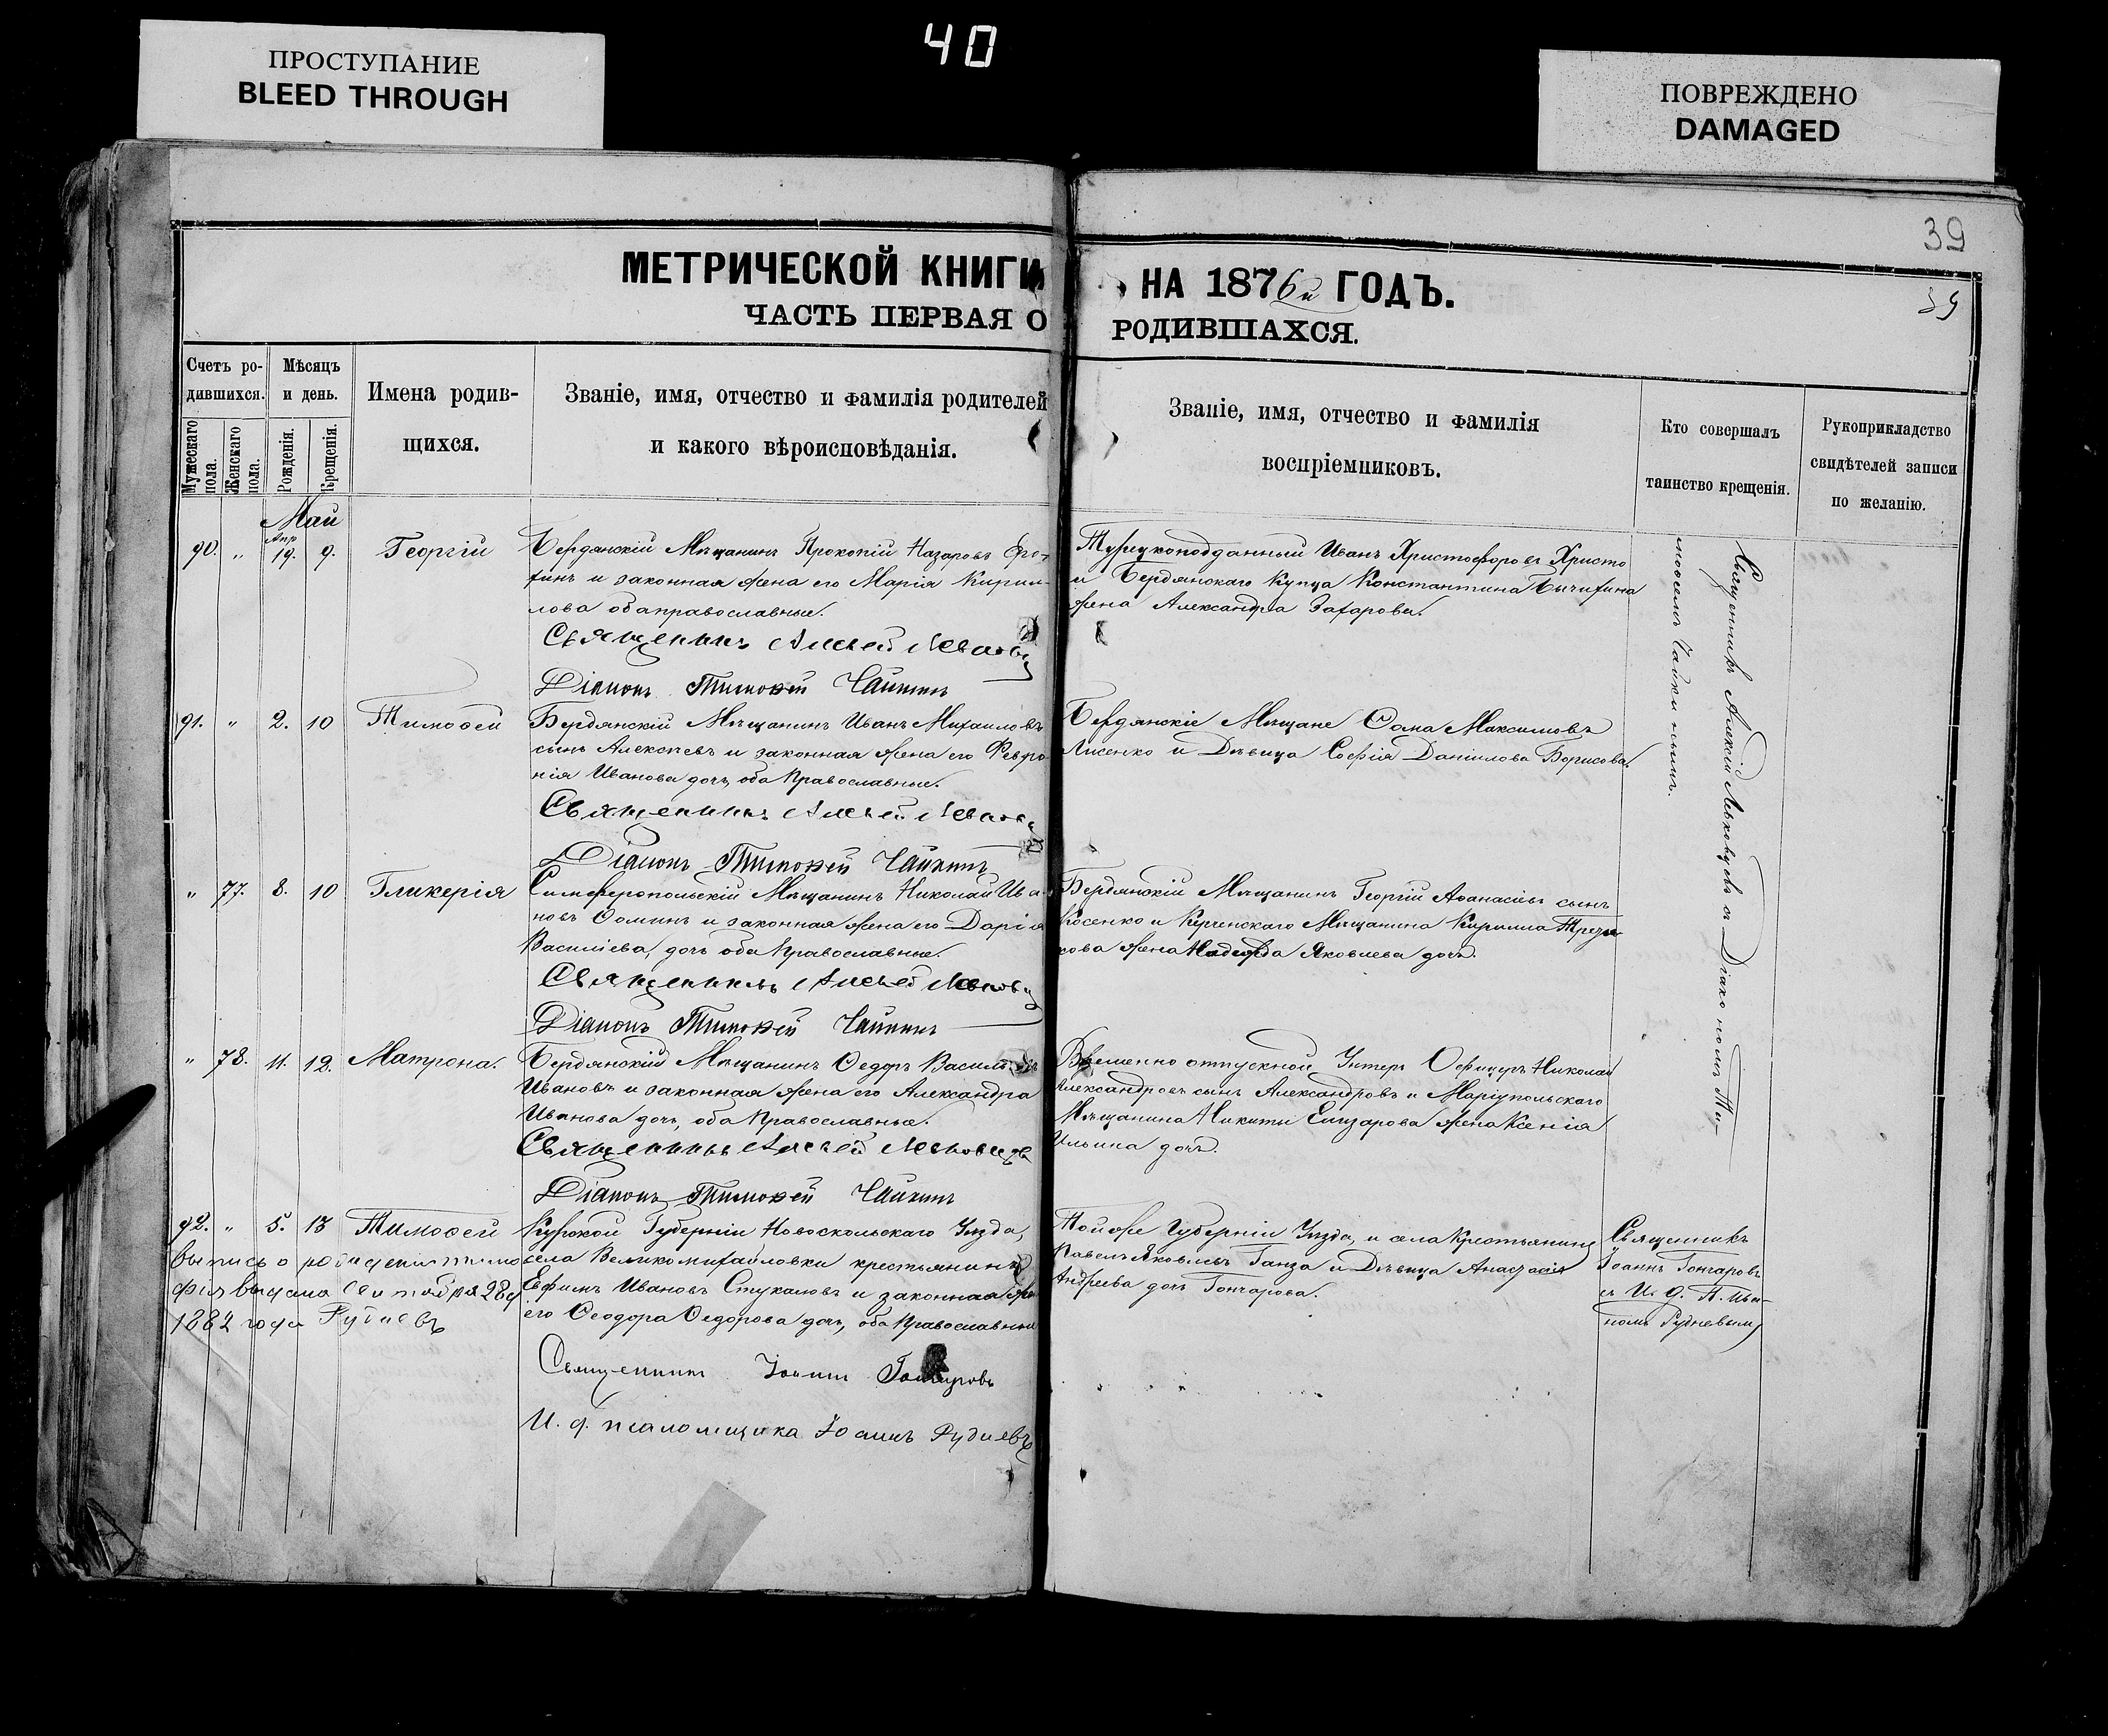 ПРОСТУПАНИЕ
BLEED THROUGH
40
ПОВРЕЖДЕНО
DAMAGED
39
39
МЕТРИЧЕСКОЙ КНИГИ НА 1876й ГОДЪ.
ЧАСТЬ ПЕРВАЯ О РОДИВШАХСЯ.
Счетъ ро-
дившихся.
Мужескаго
пола.
Женскаго
пола.
Мѣсяцъ
и день.
Рожденія.
Крещенія.
Имена родив-
щихся.
Званіе, имя, отчество и фамилія родителей
и какого вѣроисповѣданія.
Званіе, имя, отчество и фамилія
воспріемниковъ.
Кто совершалъ
таинство крещенія.
Рукоприкладство
свидѣтелей записи
по желанію.
Май
Апр
90. " 19. 9. Георгій
Бердянскій Мѣщанинъ Прокопій Назаровъ
и законная жена его Марія Кирил-
лова оба православные.
Священникъ
Діаконъ Тимоѳей Чайкинъ
Турецкоподданный Иванъ Христофоровъ Христо
и Бердянскаго Купца Константина Бычихина
жена Александра Захарова.
Священникъ Алексій съ Діакономъ Ти-
моѳеемъ Чайкинымъ.
91. " 2. 10 Тимоѳей
Бердянскій Мѣщанинъ Иванъ Михаиловъ
сынъ Алексѣевъ и законная жена его Февро
нія Иванова дочь, оба Православные.
Священникъ
Діаконъ Тимоѳей Чайкинъ
Бердянскіе Мѣщане Ѳома Максимовъ
Лисенко и Дѣвица Софія Даніилова Борисова.
" 77. 8. 10 Гликерія
Симферопольскій Мѣщанинъ Николай Ива-
новъ Ѳоминъ и законная жена его Дарія
Василіева, дочь оба Православные.
Священникъ
Діаконъ Тимоѳей Чайкинъ
Бердянскій Мѣщанинъ Георгій Аѳанасіевъ сынъ
Косенко и Керченскаго Мѣщанина Кирилла
жена Надежда Яковлева дочь.
" 78. 11. 12. Матрона.
Бердянскій Мѣщанинъ Ѳедоръ
Ивановъ и законная жена его Александра
Иванова дочь, оба Православные.
Священникъ
Діаконъ Тимоѳей Чайкинъ
Временно отпускной Унтеръ Офицеръ Николай
Александровъ сынъ Александровъ и Маріупольскаго
Мѣщанина Никиты Елизарова жена Ксенія
Ильина дочь.
92. " 5. 13 Тимоѳей
Выпись о рожденіи Тимо
фія выдана Сентября 28 д
1882 года Рудневъ
Курской Губерніи Новоскольскаго Уѣзда,
села Великомихайловки крестьянинъ
Ефимъ Ивановъ Стукаловъ и законная же
его Ѳеодора Ѳедорова дочь, оба Православные
Священникъ Іоаннъ Гончаровъ
И. д. псаломщика Іоаннъ Рудневъ
Тойже Губерніи Уѣзда, и села Крестьянинъ
Павелъ Яковлевъ Ганза и Дѣвица Анастасія
Андреева дочь Гончарова.
Священникъ
Іоаннъ Гончаровъ
съ И. д. П. Ива-
номъ Рудневымъ